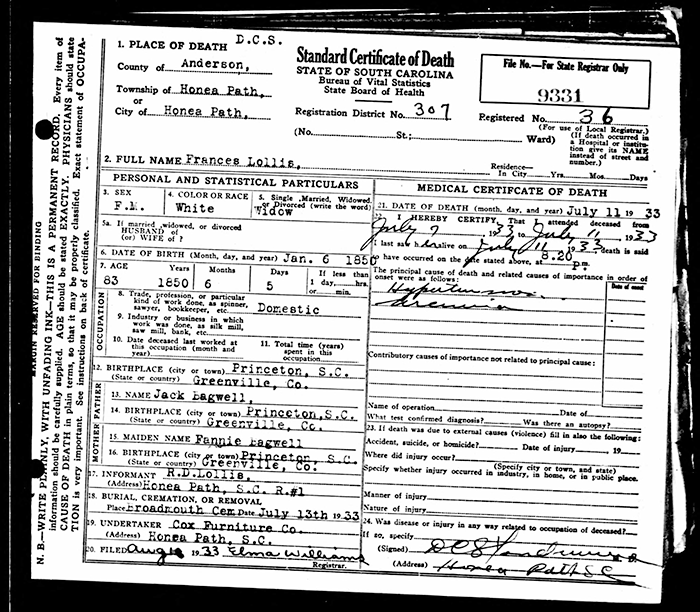 D.C.S.
1. PLACE OF DEATH
County of Anderson,
Township of Honea Path,
or
City of Honea Path,
Standard Certificate of Death
STATE OF SOUTH CAROLINA
Bureau of Vital Statistics
State Board of Health
Registration District No. 307
File No.—For State Registrar Only
9331
Registered No. 36
(For use of Local Registrar.)
(No. St.; Ward)
(If death occurred in
a Hospital or institu-
tion give its NAME
instead of street and
number.)
2. FULL NAME Frances Lollis,
Residence—
In City Yrs. Mos. Days
PERSONAL AND STATISTICAL PARTICULARS
3. SEX
F.M.
4. COLOR OR RACE
White
5. Single, Married, Widowed,
or Divorced (write the word)
Widow
5a. If married, widowed, or divorced
HUSBAND of
(or) WIFE of ?
6. DATE OF BIRTH (Month, day, and year) Jan. 6 1850
7. AGE Years Months Days If less than
1 day, hrs.
or min.
83 1850 6 5
OCCUPATION
8. Trade, profession, or particular
kind of work done, as spinner,
sawyer, bookkeeper, etc. Domestic
9. Industry or business in which
work was done, as silk mill,
saw mill, bank, etc.
10. Date deceased last worked at
this occupation (month and
year)
11. Total time (years)
spent in this
occupation
12. BIRTHPLACE (city or town) Princeton, S.C.
(State or country) Greenville, Co.
FATHER
13. NAME Jack Bagwell,
14. BIRTHPLACE (city or town) Princeton, S.C.
(State or country) Greenville, Co.
MOTHER
15. MAIDEN NAME Fannie Bagwell
16. BIRTHPLACE (city or town) Princeton, S.C.
(State or country) Greenville, Co.
17. INFORMANT R.D.Lollis,
(Address) Honea Path, S.C. R.#1
18. BURIAL, CREMATION, OR REMOVAL
Place Broadmouth Cem Date July 13th 1933
19. UNDERTAKER Cox Furniture Co.
(Address) Honea Path, S.C.
20. FILED Aug 1933 Elma Williams
Registrar.
MEDICAL CERTIFICATE OF DEATH
21. DATE OF DEATH (month, day, and year) July 11 1933
22. I HEREBY CERTIFY, That I attended deceased from
July 7 1933 to July 11, 1933
I last saw h er alive on July 11 1933 death is said
to have occurred on the date stated above, at 8.20 p.m.
The principal cause of death and related causes of importance in order of
onset were as follows:
Date of onset
Hypertension
Uremia
Contributory causes of importance not related to principal cause:
Name of operation Date of
What test confirmed diagnosis? Was there an autopsy?
23. If death was due to external causes (violence) fill in also the following:
Accident, suicide, or homicide? Date of injury 19
Where did injury occur?
(Specify city or town, and state)
Specify whether injury occurred in industry, in home, or in public place.
Manner of injury
Nature of injury
24. Was disease or injury in any way related to occupation of deceased?
If so, specify
(Signed)
(Address) Honea Path SC
MARGIN RESERVED FOR BINDING
N. B.—WRITE PLAINLY, WITH UNFADING INK—THIS IS A PERMANENT RECORD. Every item of
information should be carefully supplied. AGE should be stated EXACTLY. PHYSICIANS should state
CAUSE OF DEATH in plain terms, so that it may be properly classified. Exact statement of OCCUPA-
TION is very important. See instructions on back of certificate.